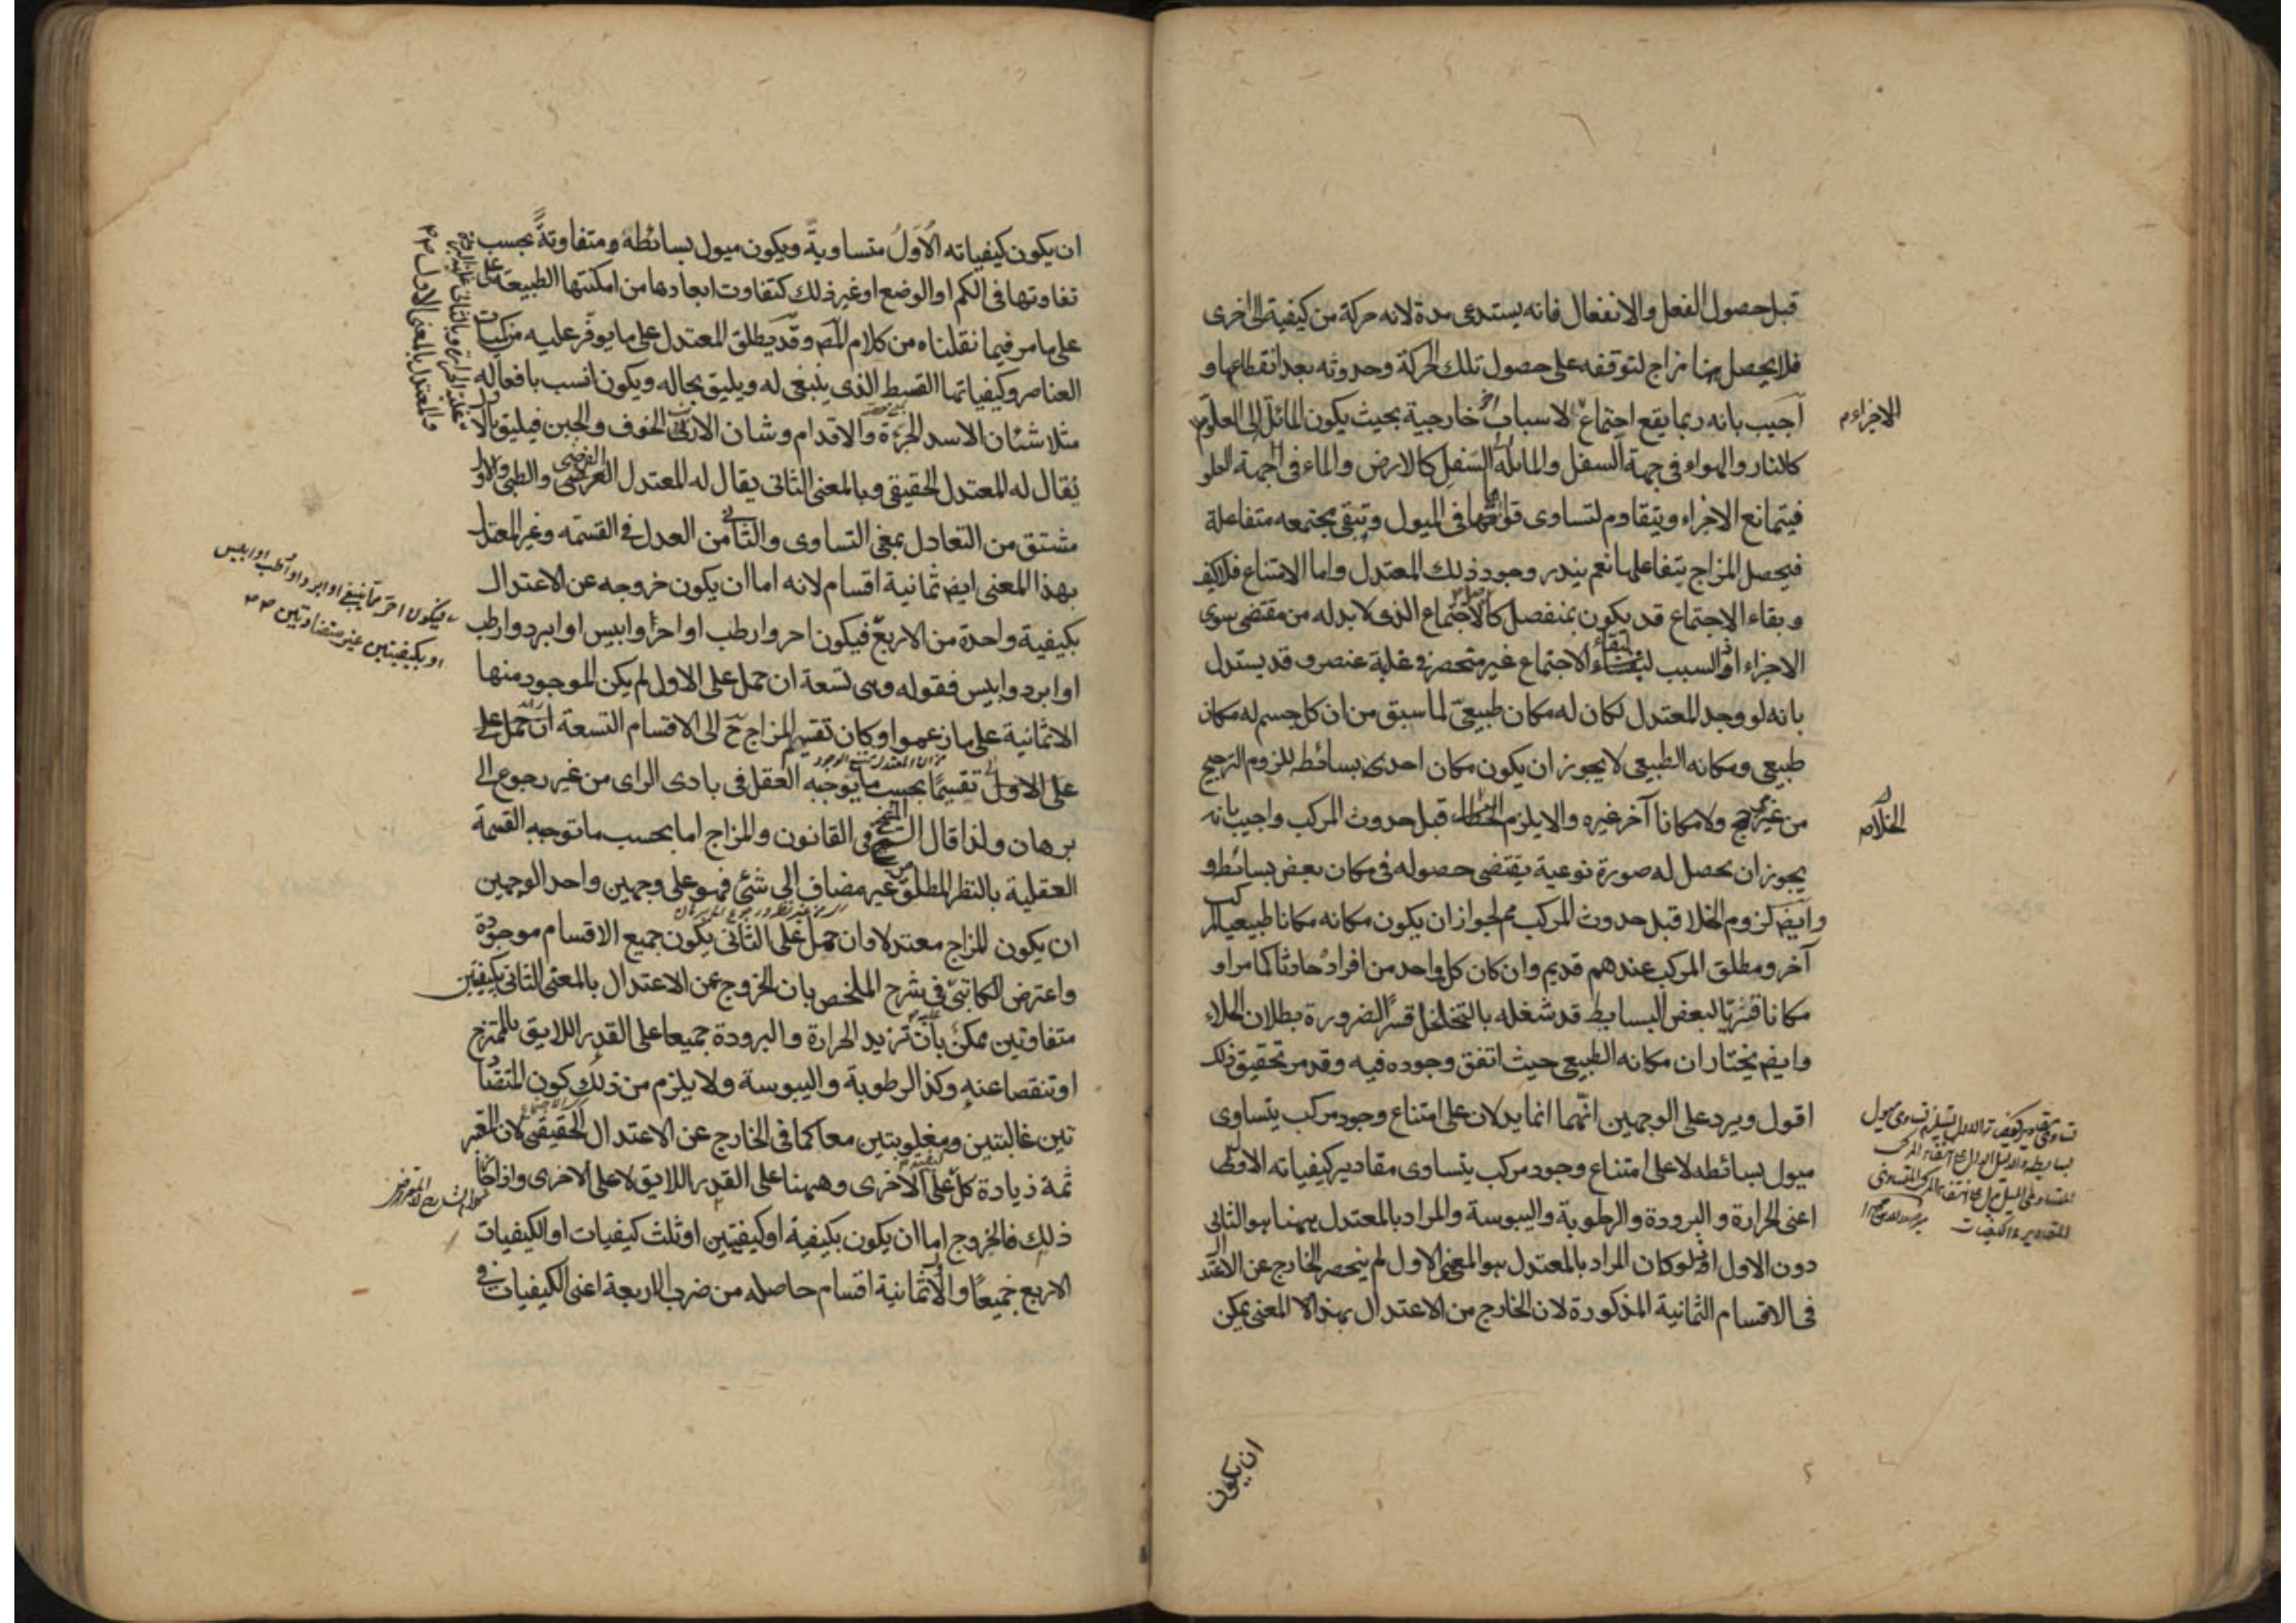 قبل حصول الفعل والانفعال فانه يستدعى مدة لانه حركة من كيفية الى اخرى
فلا يحصل هنا مزاج لتوقفه على حصول تلك الحركة وحدوثه بعد انقطاعها و
اجيب بانه ربما يقع اجتماع لاسباب اخر خارجية بحيث يكون المائل الى العلو
الاجزاء
كالنار والهواء فى جهة السفل والمائلة الى السفل كالارض والماء فى جهة العلو
فيتمانع الاجزاء ويتقاوم لتساوى قواتها فى الميول وتبقى مجتمعه متفاعلة
فيحصل المزاج بتفاعلها نعم يندر وجود ذلك المعتدل واما الامتناع فلا كيف
وبقاء الاجتماع قد يكون بمنفصل كالاجتماع الذى لابد له من مقتضى سوى
الاجزاء اذ السبب لبقاء الاجتماع غير منحصر فى غلبة عنصر وقد يستدل
بانه لو وجد المعتدل لكان له مكان طبيعى لما سبق من ان كل جسم له مكان
طبيعى ومكانه الطبيعى لا يجوز ان يكون مكان احدى بسائطه للزوم الترجيح
من غير مرجح ولا مكانا آخر غيره والا يلزم الخلاء قبل حدوث المركب واجيب بانه
الخلاء
يجوز ان يحصل له صورة نوعية يقتضى حصوله فى مكان بعض بسائطه و
وايض لزوم الخلا قبل حدوث المركب مم لجواز ان يكون مكانه مكانا طبيعيا لمركب
آخر ومطلق المركب عندهم قديم وان كان كل واحد من افراده حادثا كما مر او
مكانا قسريا لبعض البسايط قد شغله بالتخلخل قسرا لضرورة بطلان الخلاء
وايض يختار ان مكانه الطبيعى حيث اتفق وجوده فيه وقد مر تحقيق ذلك
اقول ويرد على الوجهين انهما انما يدلان على امتناع وجود مركب يتساوى
ميول بسائطه لا على امتناع وجود مركب يتساوى مقادير كيفياته الاولى
اعنى الحرارة والبرودة والرطوبة واليبوسة والمراد بالمعتدل ههنا هو الثانى
دون الاول اذ لو كان المراد بالمعتدل هو المعنى الاول لم ينحصر الخارج عن الاعتدال
فى الاقسام الثمانية المذكورة لان الخارج من الاعتدال بهذا المعنى يمكن
ان يكون
ان يكون كيفياته الاول متساوية ويكون ميول بسائطه متفاوتة بحسب
تفاوتها فى الكم او الوضع او غير ذلك كتفاوت ابعادها من امكنتها الطبيعة
على ما مر فيما نقلناه من كلام المص وقد يطلق المعتدل على ما يوفر عليه من كميات
العناصر وكيفياتها القسط الذى ينبغى له ويليق بحاله ويكون انسب بافعاله
مثلا شان الاسد الجرءة والاقدام وشان الارنب الخوف والجبن فيليق بالا
يقال له المعتدل الحقيقى وبالمعنى الثانى يقال له المعتدل الفرضى والطبى والاول
مشتق من التعادل بمعنى التساوى والثانى من العدل فى القسمه وغير المعتدل
بهذا المعنى ايض ثمانية اقسام لانه اما ان يكون خروجه عن الاعتدال
بكيفية واحدة من الاربع فيكون احر وارطب او احر وايبس او ابرد وارطب
فيكون احر مما ينبغى او ابرد او ارطب او ايبس
او بكيفيتين غير متضادتين
او ابرد وايبس فقوله وهى تسعة ان حمل على الاول لم يكن الموجود منها
الا ثمانية على ما زعموا وكان تقسيم المزاج ح الى الاقسام التسعة ان حمل على
على الاول تقسيما بحسب ما يوجبه العقل فى بادى الراى من غير رجوع الى
برهان ولذا قال الشيخ فى القانون والمزاج اما بحسب ما توجبه القسمة
العقلية بالنظر المطلق غير مضاف الى شئ فهو على وجهين واحد الوجهين
ان يكون المزاج معتدلا وان حمل على الثانى يكون جميع الاقسام موجودة
واعترض الكاتبى فى شرح الملخص بان الخروج عن الاعتدال بالمعنى الثانى بكيفيتين
متفاوتين ممكن بان تزيد الحرارة والبرودة جميعا على القدر اللايق بالممتزج
او تنقصا عنه وكذا الرطوبة واليبوسة ولا يلزم من ذلك كون المتضا
تين غالبتين ومغلوبتين معا كما فى الخارج عن الاعتدال الحقيقى لان المعتبر
ثمة زيادة كل على الاخرى وههنا على القدر اللايق لا على الاخرى واذا كان
ذلك فالخروج اما ان يكون بكيفية او كيفيتين او ثلث كيفيات او الكيفيات
الاربع جميعا والا ثمانية اقسام حاصله من ضرب الاربعة اعنى الكيفيات فى